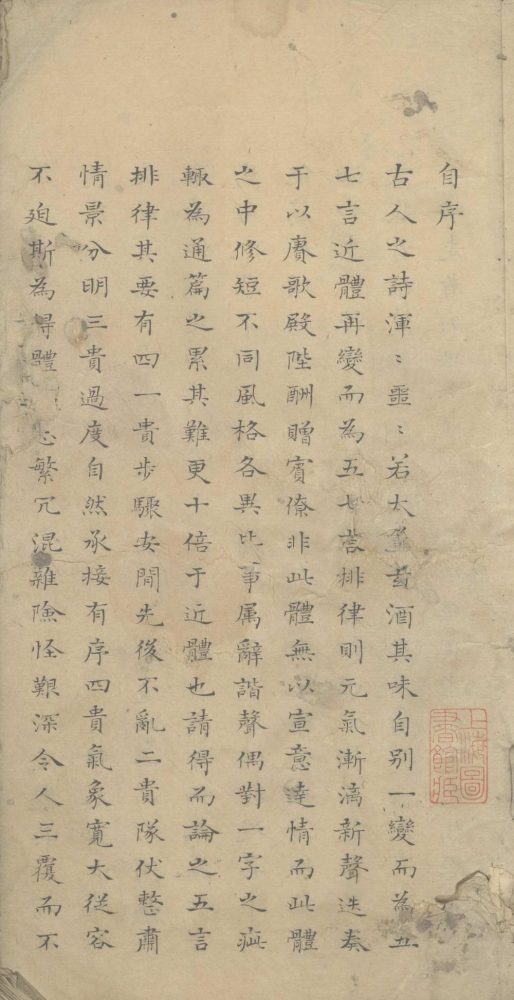 自序
古人之詩渾〻噩〻若太羹昔酒其味自别一變而為五
七言近體再變而為五七言排律則元氣漸漓新聲迭奏
于以賡歌殿陛酬贈賓僚非此體無以宣意達情而此體
之中修短不同風格各異比事属辭諧聲偶對一字之疵
輒為通篇之累其難更十倍于近體也請得而論之五言
排律其要有四一貴步驟安閒先後不亂二貴隊伏整肅
情景分明三貴過度自然承接有序四貴氣象寬大從容
不廹斯為得體 忌繁冗混雜險怪艱深令人三覆而不
上海圖書館藏